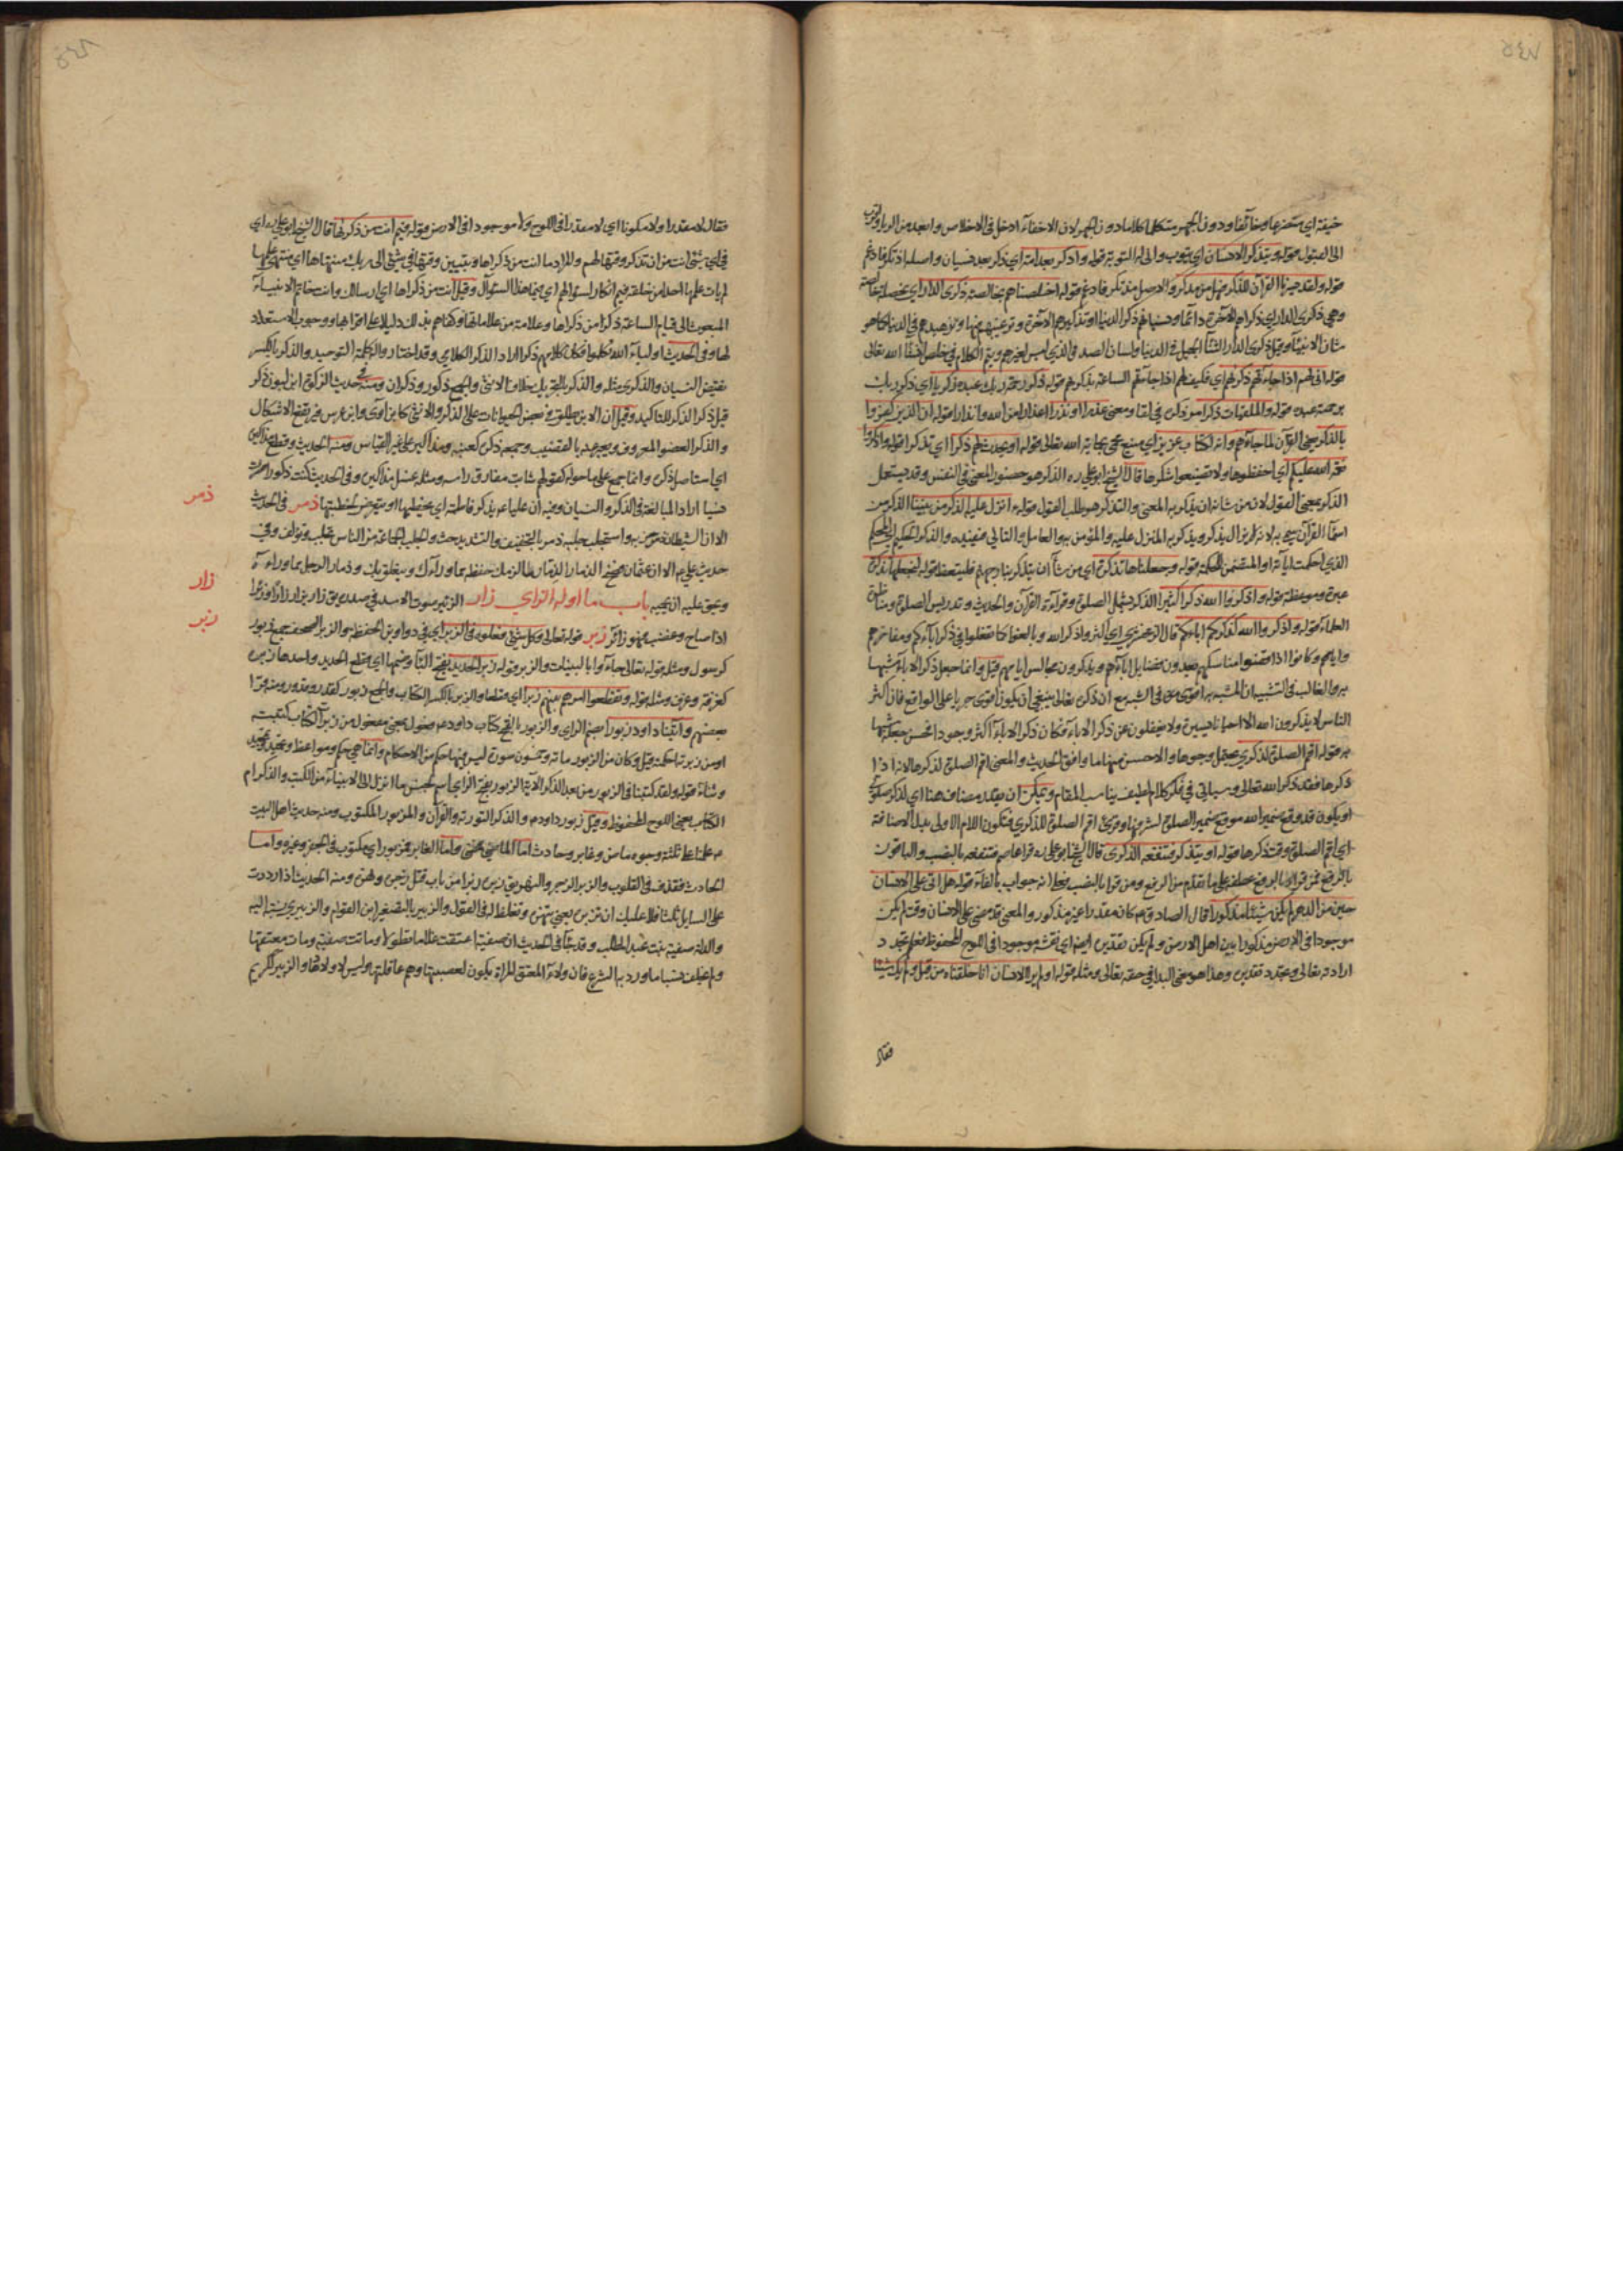 خيفة اي متضرعا وخائفا ودون الجهر متكلما كلاما دون الجهر لان الاخفاء ادخل في الاخلاص وابعد من الرياء واقرب
الى القبول قوله يتذكر الانسان اي يتوب واني له التوبة قوله وادكر بعد امة اي ذكر بعد نسيان واصله اذتكر فادغم
قوله ولقد يسرنا القرآن للذكر فهل من مدكر والاصل مذتكر فادغم قوله اخلصناهم بخالصة ذكرى الدار اي بخصلة خالصة
وهي ذكرى الدار اي ذكراهم الآخرة دائما ونسيانهم ذكر الدنيا او تذكيرهم الآخرة وترغيبهم فيها وتزهيدهم في الدنيا كما هو
شان الانبياء وقيل ذكرى الدار الثناء الجميل في الدنيا ولسان الصدق الذي ليس لغيرهم ويتم الكلام في خلص انشاء الله تعالى
قوله انى لهم اذا جاءتهم ذكراهم اي فكيف لهم اذا جاءتهم الساعة بذكراهم قوله ذكر رحمة ربك عبده زكريا اي ذكر ربك
برحمته عبده قوله والملقيات ذكرا مر ذكره في لقا ومعنى عذرا او نذرا اعذارا من الله وانذارا قوله ان الذين كفروا
بالذكر يعني القرآن لما جاءهم وانه لكتاب عزيز اي منيع محمي بحماية الله تعالى قوله او يحدث لهم ذكرا اي تذكرا قوله واذكروا
نعمة الله عليكم اي احفظوها ولا تضيعوا شكرها قال الشيخ ابو علي ره الذكر هو حضور المعنى في النفس وقد يستعمل
الذكر بمعنى القول لان من شانه ان يذكر به المعنى والتذكر هو طلب القول قوله ء انزل عليه الذكر من بيننا الذكر من
اسماء القرآن سمي به لانه لم يزل يذكر ويذكر به المنزل عليه والمؤمن به والعامل والتالي والذكر الحكيم اي المحكم
الذي احكمت آياته او المتضمن للحكمة قوله وجعلناها تذكرة اي من شاء ان يتذكر بنار جهنم فليتعظ قوله لنجعلها تذكرة
عبرة وموعظة قوله واذكروا الله ذكرا كثيرا الذكر يشمل الصلوة وقراءة القرآن والحديث وتدريس الصلوة ومناظرة
العلماء قوله واذكروا الله كذكركم اباءكم قال الزمخشري اي اكثروا ذكر الله وبالغوا كما تفعلوا في ذكر ابائكم ومفاخرهم
وايامهم وكانوا اذا قضوا مناسكهم يعدون فضايل ابائهم ويذكرون محاسن ايامهم قيل وانما جعل ذكر الاباء مشبها
به والغالب في التشبيه ان المشبه به اقوى في الشبه مع ان ذكره تعالى ينبغي ان يكون اقوى جريا على الواقع فان اكثر
الناس لا يذكرون الله الا احيانا يسيرة ولا يغفلون عن ذكر الاباء فكان ذكر الاباء اكثر وجودا فحسن جعله مشبها
به قوله اقم الصلوة لذكري يحتمل وجوها والاحسن منها ما وافق الحديث والمعنى اقم الصلوة لذكرها لانه اذا
ذكرها فقد ذكر الله تعالى وسياتي في فكر كلام لطيف يناسب المقام ويمكن ان يقدر مضاف هنا اي لذكر صلوتي
او يكون قد وقع ضمير الله موقع ضمير الصلوة لشرفها وقرئ اقم الصلوة للذكرى فتكون اللام الاولى بدل الاضافة
اي اقم الصلوة وقت ذكرها قوله او يذكر فتنفعه الذكرى قال الشيخ ابو علي ره قرا عاصم فتنفعه بالنصب والباقون
بالرفع فمن قرا بالرفع عطفه على ما تقدم من الرفع ومن قرا بالنصب فعلى انه جواب بالفاء قوله هل اتى على الانسان
حين من الدهر لم يكن شيئا مذكورا قال الصادق ع كان مقدرا غير مذكور والمعنى قد مضى على الانسان وقت لم يكن
موجودا في الارض مذكورا بين اهل الارض ولم يكن تقديره ايضا اي نقشه موجودا في اللوح المحفوظ فعلم تجدد
ارادته تعالى وتجدد تقديره وهذا هو معنى البدا في حقه تعالى ومثله قوله اولم ير الانسان انا خلقناه من قبل ولم يك شيئا
فقال
فقال لا مقدرا ولا مكونا اي لا مقدرا في اللوح ولا موجودا في الارض قوله فيم انت من ذكراها قال الشيخ ابو علي ره اي
في اي شئ انت من ان تذكر وقتها لهم والمراد ما انت من ذكراها وتبيين وقتها في شئ الى ربك منتهاها اي منتهى علمها
لم يات علمها احدا من خلقه فيم انكار لسؤالهم اي فيما هذا السؤال وقيل انت من ذكراها اي ارسالك وانت خاتم الانبياء
المبعوث الى قيام الساعة ذكرا من ذكراها وعلامة من علاماتها وكفاهم بذلك دليلا على اقترابها ووجوب الاستعداد
لها وفي الحديث اولياء الله تكلموا فكان كلامهم ذكرا اراد الذكر الكلامي وقد اختار واله كلمة التوحيد والذكر بالكسر
نقيض النسيان والذكرى مثله والذكر بالتحريك خلاف الانثى والجمع ذكور وذكران ومنه في حديث الزكوة ابن لبون ذكر
قيل ذكر الذكر للتاكيد وقيل ان الابن يطلق في بعض الحيوانات على الذكر والانثى كابن آوى وابن عرس فيرتفع الاشكال
والذكر العضو المعروف ويعبر عنه بالقضيب وجمعه ذكرة كعنبة ومذاكير على غير القياس ومنه الحديث وقطع مذاكيره
اي استاصل ذكره وانما جمع على ما حوله كقولهم شابت مفارق راسه ومثله غسل مذاكيره وفي الحديث كنت ذكورا فصرت
نسيا اراد المبالغة في الذكر والنسيان وفيه ان عليا ع يذكر فاطمة اي يخطبها او يتعرض لخطبتها ذمر في الحديث
الا ان الشيطان قد ذمر حزبه واستجلب جلبه ذمر بالتخفيف والتشديد حث والجلب الجماعة من الناس تجلب وتؤلف وفي
حديث علي ع الا ان عثمان فضح الذمار الذمار ما لزمك حفظه مما وراءك ويتعلق بك وذمار الرجل مما وراءه
ويحق عليه ان يحميه باب ما اوله الزاي زار الزئير صوت الاسد في صدره يق زار يزار زارا وزئيرا
اذا صاح وغضب فهو زائر زبر قوله تعالى وكل شئ فعلوه في الزبر اي في دواوين الحفظة والزبر الصحف جمع زبور
كرسول ومثله قوله تعالى جاءوا بالبينات والزبر قوله زبر الحديد بفتح الباء وضمها اي قطع الحديد واحدها زبرة
كغرفة وغرف ومثله قوله وتقطعوا امرهم بينهم زبرا اي قطعا والزبر بالكسر الكتاب والجمع زبور كقدر وقدور ومنه قرا
بعضهم واتينا داود زبورا بضم الزاي والزبور بالفتح كتاب داود ع فعول بمعنى مفعول من زبرت الكتاب كتبته
او من زبرته احكمته وقيل وكان من الزبور مائة وخمسون سورة ليس فيها حكم من الاحكام وانما هي حكم ومواعظ وتحميد وتمجيد
وثناء قوله ولقد كتبنا في الزبور من بعد الذكر الآية الزبور بفتح الزاي اسم لجنس ما انزل الى الانبياء من الكتب والذكر ام
الكتاب يعني اللوح المحفوظ وقيل زبور داود ع والذكر التورية والقرآن والمزبور المكتوب ومنه حديث اهل البيت
ع علمنا على ثلثة وجوه ماض وغابر وحادث اما الماضي فمفسر واما الغابر فمزبور اي مكتوب في الجفر وغيره واما
الحادث فقذف في القلوب والزبر الزجر والنهر يق زبره زبرا من باب قتل زجره ونهره ومنه الحديث اذا رددت
على السايل ثلثا فلا عليك ان تزبره يعني تنهره وتغلظ له في القول والزبير بالتصغير ابن العوام والزبيري نسبة اليه
والدته صفية بنت عبد المطلب وقد جاء في الحديث ان صفية اعتقت غلاما مقلولا وماتت صفية ومات معتقها
ولم يخلف نسبا ما ورد به الشرع فان ولاء المعتق للمراة يكون لعصبتها وهم عاقلتها وليس لاولادها والزبير كريم
ذمر
زار
زبر
٥٤٧
٥٤٨